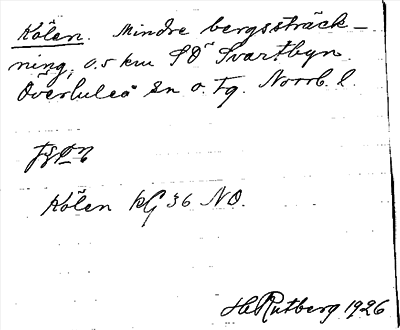 Kölen. Mindre bergssträck-
ning, 0.5 km SO Svartbyn
Överluleå Sn o. Tg. Norrb. l.
Kölen kG 36 NO.
H Rutberg 1926